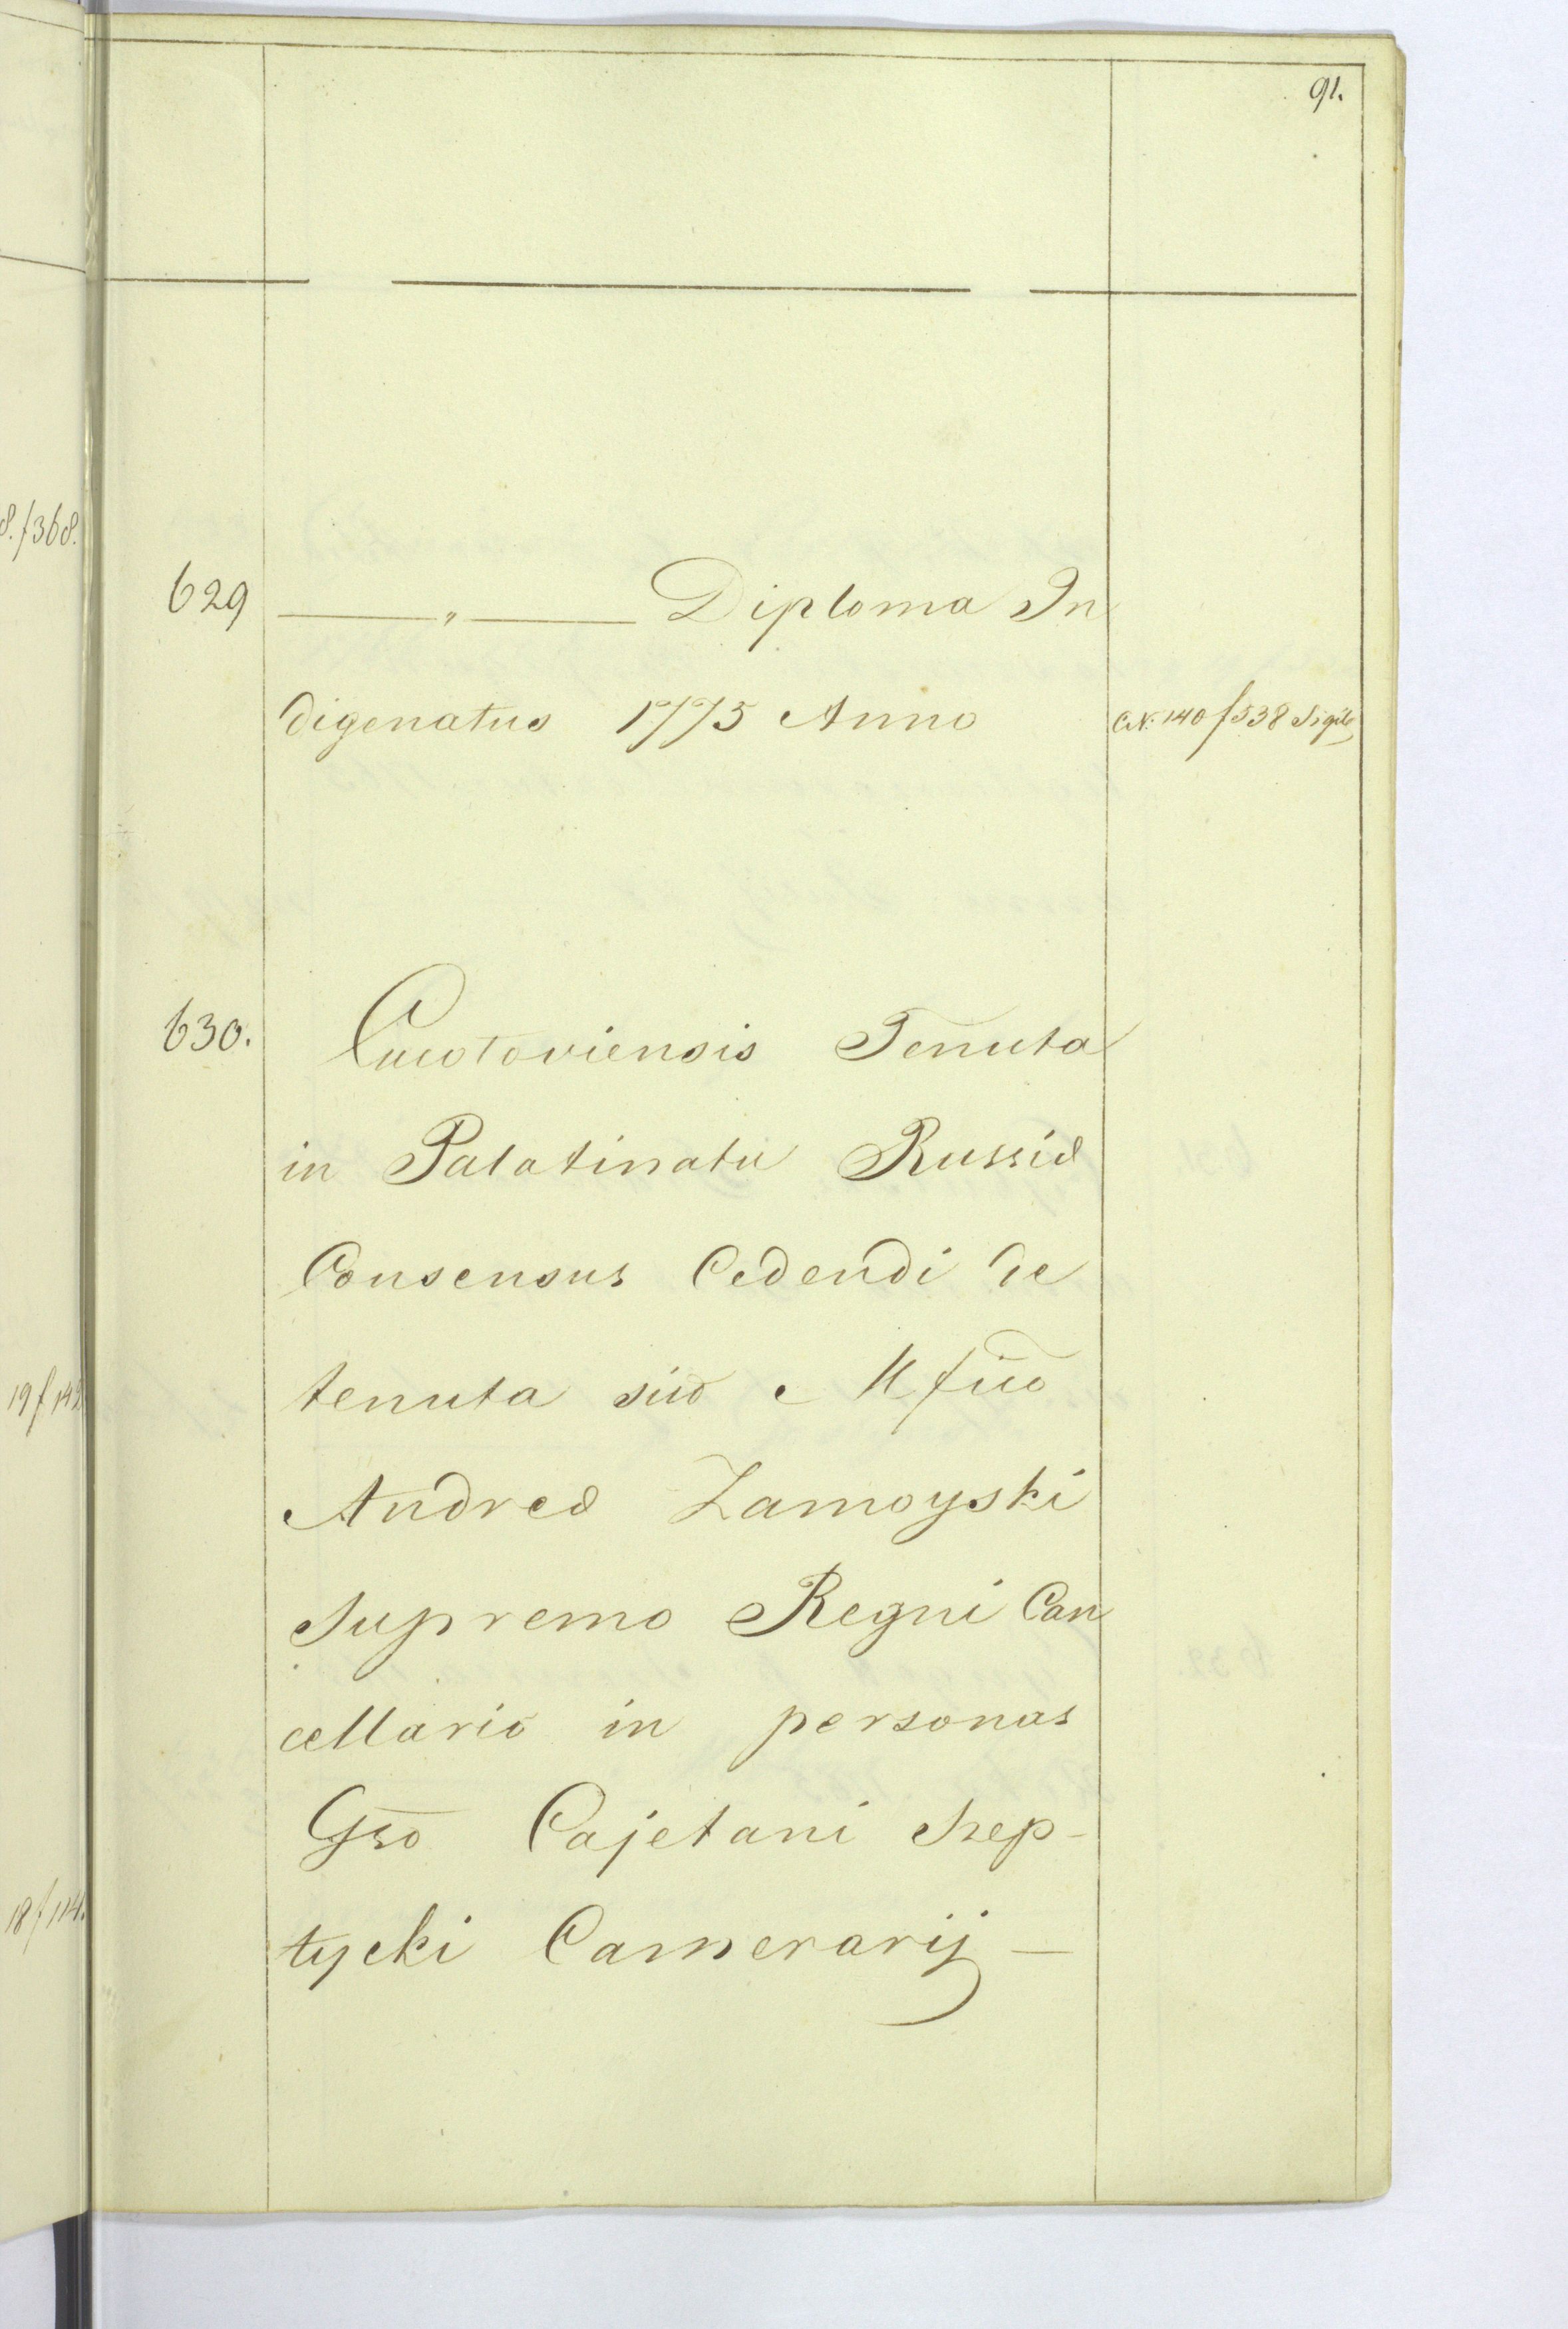 91.
8. f 368.
629 —„— Diploma In
digenatus 1775 Anno
N. 140 f 538 Sigil
630. Cucotoviensis Tenuta
in Palatinatu Russiæ
Consensus Cedendi de
tenuta suo Mfico
19 f 143
Andreæ Zamoyski
Supremo Regni Can
cellario in personas
Gso Cajetani Szep-
18 f 114.
tycki Camerarij —